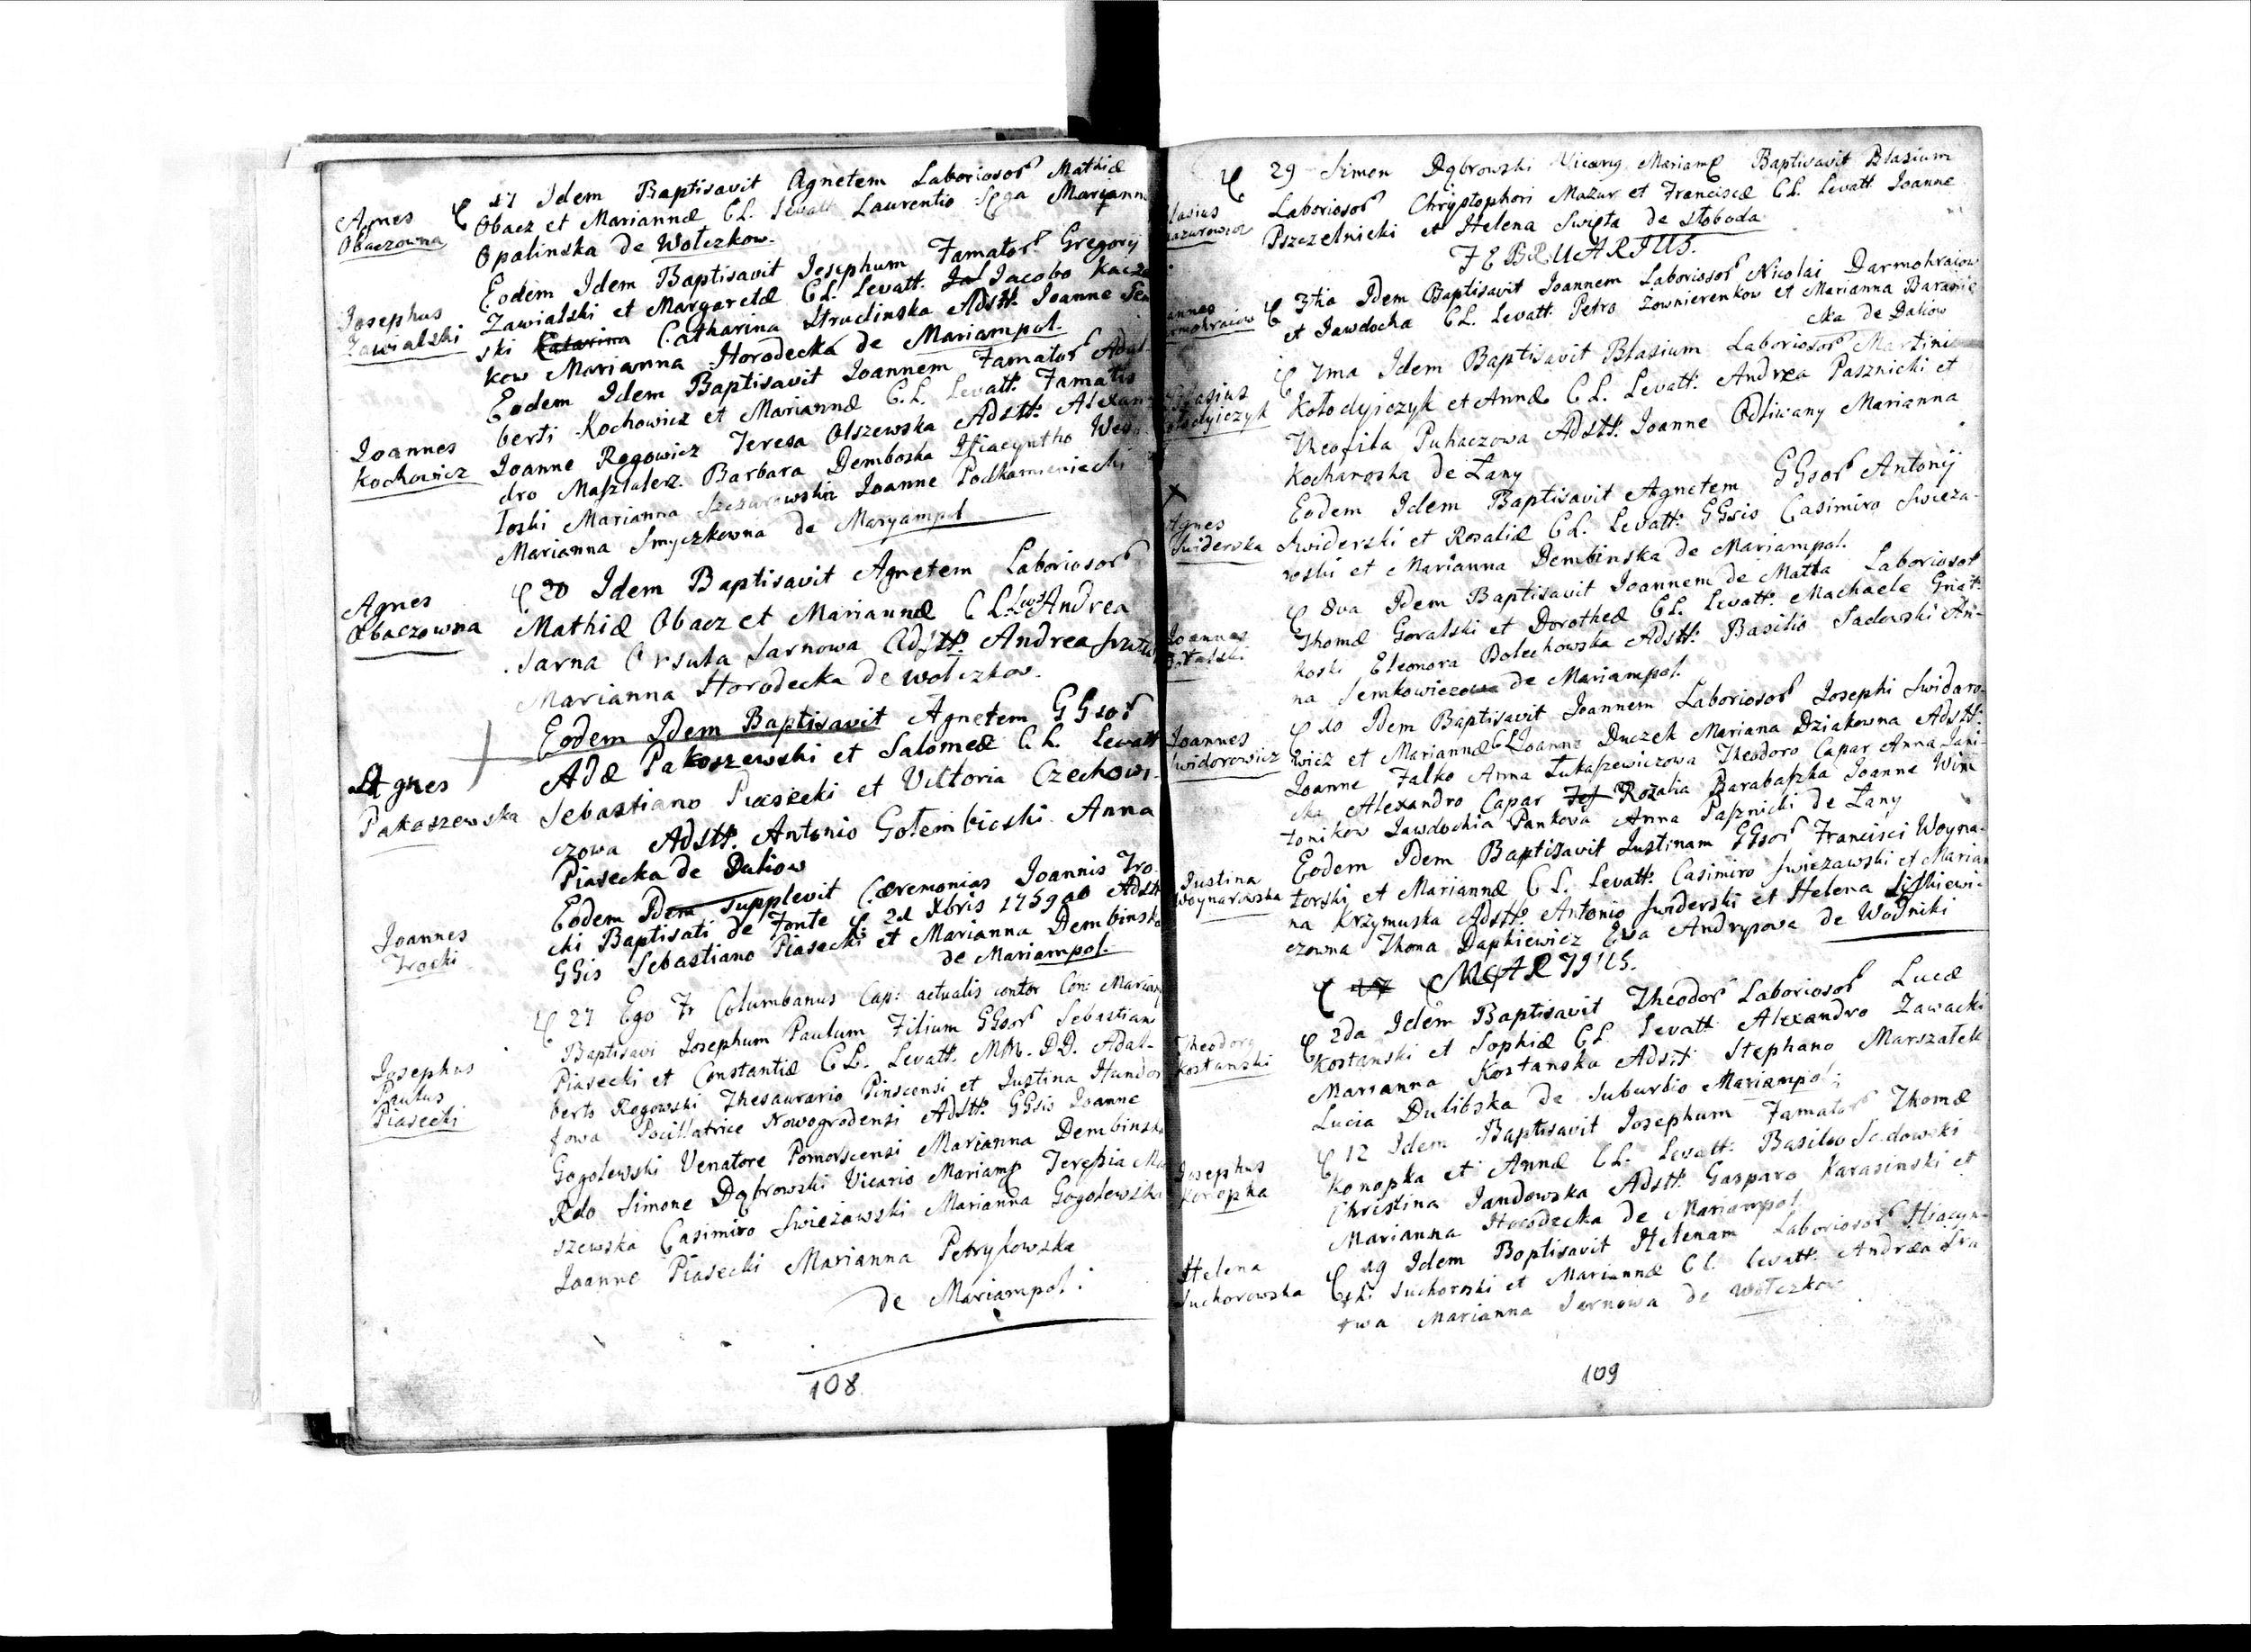 Agnes
Obaczowna
17 Idem Baptisavit Agnetem Laboriosor Mathiæ
Obacz et Mariannæ C.L. Levatt Laurentio Sęga Mariann
Opalinska de Wołczkow.
Josephus
Zawialski
Eodem Idem Baptisavit Josephum Famator Gregorij
Zawialski et Margaretæ C.L. Levatt. Jacobo Kacz
ski Catharina Strudinska Adstt. Joanne Sen
kow Marianna Horodecka de Mariampol.
Joannes
Kochowicz
Eodem Idem Baptisavit Joannem Famator Adal
berti Kochowicz et Mariannæ C.L. Levatt. Famatis
Joanne Rogowicz Teresa Olszewska Adstt. Alexan
dro Masztalerz Barbara Demboska Hiacyntho Weso
łoski Marianna Joanne Podkamieniecki
Marianna Smyczkowna de Maryampol
Agnes
Obaczowna
20 Idem Baptisavit Agnetem Laboriosor
Mathiæ Obacz et Mariannæ C L Andrea
Sarna Orsula Sarnowa Adstt. Andrea
Marianna Horodecka de Wołczkow.
Agnes
Pakoszewska
Eodem Idem Baptisavit Agnetem GGsor
Adæ Pakoszewski et Salomeæ C.L. Levatt
Sebastiano Piasecki et Viktoria Czechowi
czowa Adstt. Antonio Gołembioski Anna
Piasecka de Dubow
Joannes
Trocki
Eodem Idem supplevit Cæremonias Joannis Tro
cki Baptisati de Fonte 21 Xbris 1759 Adstt
GGis Sebastiano Piasecki et Marianna Dembinska
de Mariampol.
Josephus
Paulus
Piasecki
27 Ego Fr Columbanus Cap: actualis contor Con: Mariamp
Baptisavi Josephum Paulum Filium GGsor Sebastian
Piasecki et Constantiæ C.L. Levatt. MM. DD. Adal-
berto Rogowski Thesaurario Pinscensi et Justina Hundor
fowa Pocillatrice Nowogrodensi Adstt. GGsis Joanne
Gogolewski Venatore Pomorscensi Marianna Dembinska
Rdo Simone Dąbrowski Vicario Mariamp Teresia Ma
szewska Casimiro Swieżawski Marianna Gogolewska
Joanne Piasecki Marianna Petrykowska
de Mariampol.
108
Blasius
Mazurowicz
29 Simon Dąbrowski Vicarig Mariamp Baptisavit Blasium
Laboriosor Chrystophori Mazur et Franciscæ C.L. Levatt. Joanne
Pszczelnicki et Helena Swięta de Słoboda
FEBRUARIUS.
Joannes
Darmohraiow
3tia Idem Baptisavit Joannem Laboriosor Nicolai Darmohraiow
et Jawdocha C.L. Levatt. Petro Zownierenkow et Marianna Baranie
cka de Daliow
Blasius
Kołodyiczyk
7ma Idem Baptisavit Blasium Laboriosor Martini
Kołodyiczyk et Annæ C.L. Levatt. Andrea Pasznicki et
Theofila Puhaczowa Adstt. Joanne Odliwany Marianna
Kocharoska de Łany
Agnes
Swiderska
Eodem Idem Baptisavit Agnetem GGsor Antonij
Swiderski et Rosaliæ C.L. Levatt. GGsis Casimiro Swieza-
woski et Marianna Dembinska de Mariampol.
Joannes
Goralski
8va Idem Baptisavit Joannem de Matta Laboriosor
Thomæ Goralski et Dorotheæ C.L. Levatt. Machaele Gnat-
koski Eleonora Bolechowska Adstt. Basilio Sadowski An-
na Semkowiczowa de Mariampol.
Joannes
Swidorowicz
10 Idem Baptisavit Joannem Laboriosor Josephi Swidaro-
wicz et Mariannæ C.L. Joanne Duczek Mariana Dziakowna Adstt.
Joanne Falko Anna Łukaszewiczowa Theodoro Capar Anna Jani-
cka Alexandro Capar Rozalia Barabaszka Joanne Win
tonikow Jawdochia Pankowa Anna Pasznicki de Łany
Justina
Woynarowska
Eodem Idem Baptisavit Justinam GGsor Francisci Woyna-
rorski et Mariannæ C.L. Levatt. Casimiro Swiezawski et Marian
na Krzymuska Adstt. Antonio Swiderski et Helena
czowna Thoma Dapkiewicz Eva Andrysowa de Wodniki
17 MARTIUS.
Theodorg
Kostanski
2da Idem Baptisavit Theodor Laboriosor Lucæ
Kostanski et Sophiæ C.L. Levatt Alexandro Zawacki
Marianna Kostanska Adstt Stephano Marszałek
Lucia Dulibska de Suburbio Mariampol.
Josephus
Konopka
12 Idem Baptisavit Josephum Famator Thomæ
Konopka et Annæ C.L. Levatt. Basilio Sadowski
Christina Jandowska Adstt Gasparo Karasinski et
Marianna Horodecka de Mariampol
Helena
Suchorowska
19 Idem Baptisavit Helenam Laboriosor Hiacyn-
thi Suchoroski et Mariannæ C.L. Levatt. Andrea Sra
Marianna Sarnowa de Wołczkow
109